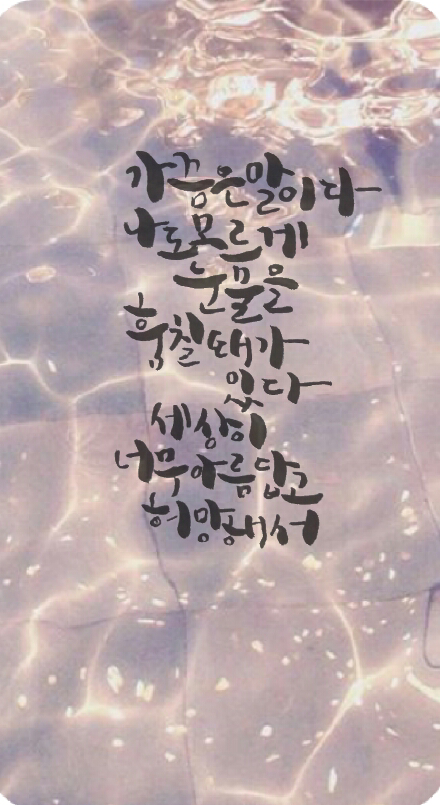 가끔은말이다
나도모르게
눈물을
훔칠때가
있다
세상이
너무아름답고
허망해서